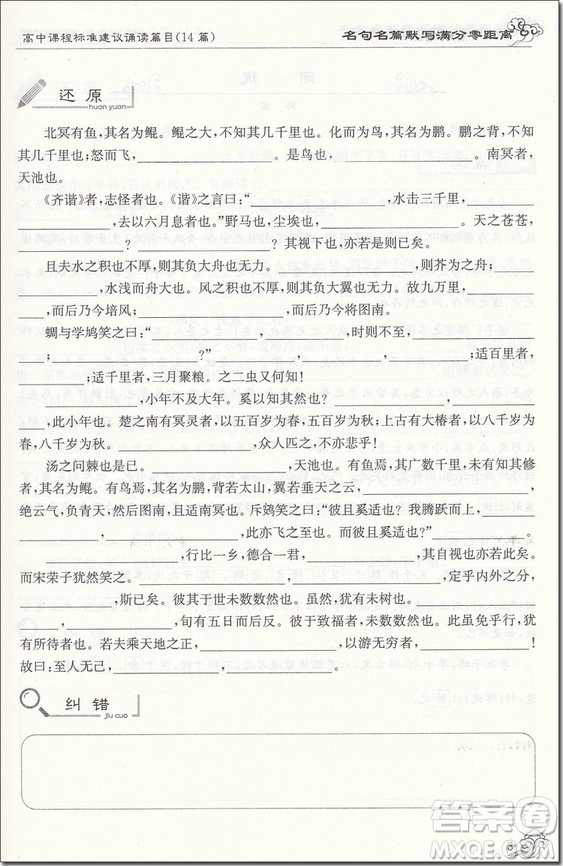 高中课程标准建议诵读篇目(14 篇)
名句名篇默写满分零距离
还原
huan yuan
北冥有鱼，其名为鲲。鲲之大，不知其几千里也。化而为鸟，其名为鹏。鹏之背，不知
其几千里也；怒而飞，________。是鸟也，________。南冥者，
天池也。
《齐谐》者，志怪者也。《谐》之言曰：“________，水击三千里，
________，去以六月息者也。”野马也，尘埃也，________。天之苍苍，
________？________？其视下也，亦若是则已矣。
且夫水之积也不厚，则其负大舟也无力。________，则芥为之舟；
________，水浅而舟大也。风之积也不厚，则其负大翼也无力。________
________，而后乃今培风；________，而后乃今将图南。
蜩与学鸠笑之曰：“________，________，时则不至，________
________；________？”________，________；适百里者，
________；适千里者，三月聚粮。之二虫又何知！
________，小年不及大年。奚以知其然也？________，________
________，此小年也。楚之南有冥灵者，以五百岁为春，五百岁为秋；上古有大椿者，以八千岁为
春，八千岁为秋。________，众人匹之，不亦悲乎！
汤之问棘也是已。________，天池也。有鱼焉，其广数千里，未有知其
修者，其名为鲲。有鸟焉，其名为鹏，背若太山，翼若垂天之云，________，
绝云气，负青天，然后图南，且适南冥也。斥鴳笑之曰：“彼且奚适也？我腾跃而上，
________，________，此亦飞之至也。而彼且奚适也？”________
________，行比一乡，德合一君，________，其自视也亦若此矣。
而宋荣子犹然笑之。________，________，定乎内外之分，
________，斯已矣。彼其于世未数数然也。虽然，犹有未树也。________，
________，旬有五日而后反。彼于致福者，未数数然也。此虽免乎行，犹
有所待者也。若夫乘天地之正，________，以游无穷者，________！
故曰：至人无己，________，________。
纠错
jiu cuo
答案圈